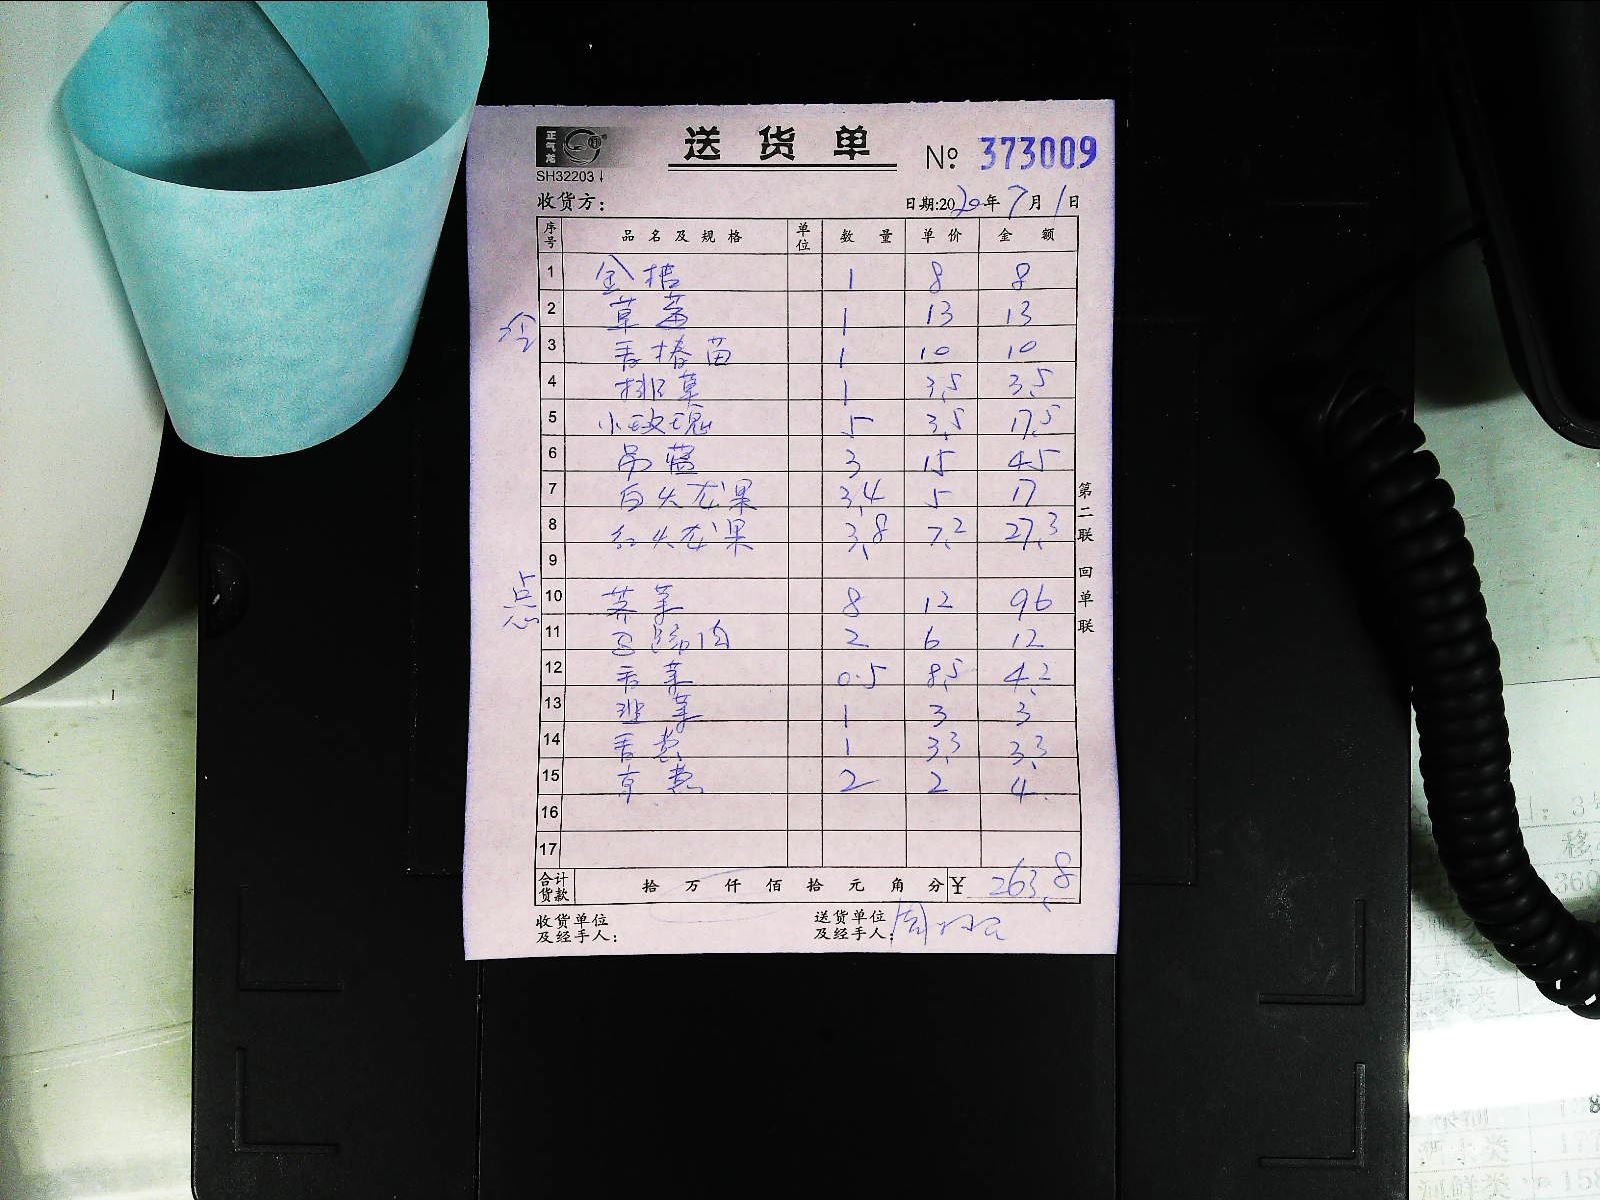 正气龙
送货单
№ 373009
SH32203↓
收货方：
日期:2020年7月1日
序号 品名及规格 单位 数量 单价 金额
1 金桔 1 8 8
2 草莓 1 13 13
冷
3 香椿苗 1 10 10
4 排草 1 3.5 3.5
5 小玫瑰 5 3.5 17.5
6 吊篮 3 15 45
7 白火龙果 3.4 5 17
8 红火龙果 3.8 7.2 27.3
9
点心
10 荠菜 8 12 96
11 马蹄肉 2 6 12
12 香菜 0.5 8.5 4.2
13 菜 1 3 3
14 香葱 1 3.3 3.3
15 京葱 2 2 4
16
17
合计货款 拾万仟佰拾元角分 ¥ 263.8
收货单位及经手人：
送货单位及经手人：周
第二联 回单联